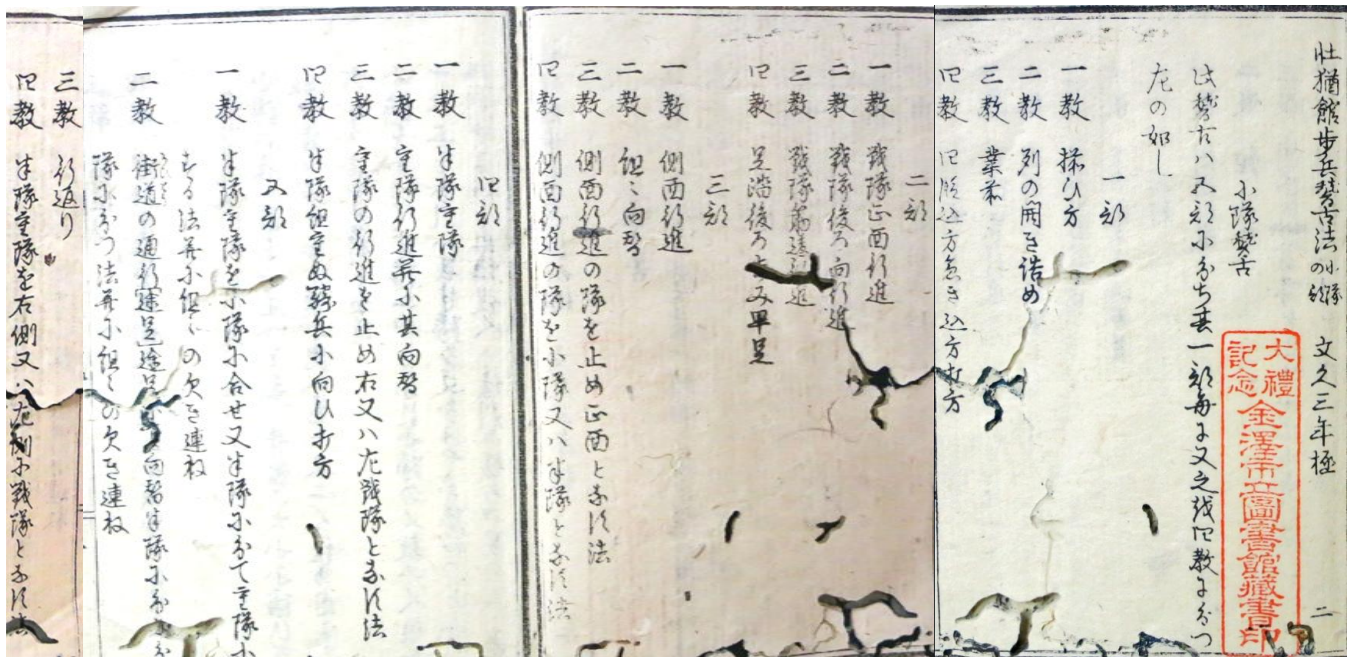 壮猶館歩兵稽古法小隊の部 文久三年極 二
大禮記念金澤市立圖書館藏書印
小隊稽古
此稽古ハ五部に分ち壱一部毎に又之を四教に分つ
左の如し
一部
一教 揉ひ方
二教 列の開き詰め
三教 業前
四教 四段込方急き込方打方
二部
一教 戦隊正面行進
二教 戦隊後ろ向行進
三教 戦隊斜行進
四教 足踏後ろ歩み早足
三部
一教 側面行進
二教 組々向替
三教 側面行進の隊を止め正面と為す法
四教 側面行進の隊を小隊又ハ半隊と為す法
四部
一教 半隊重隊
二教 重隊行進并に其向替
三教 重隊の行進を止め右又ハ左戦隊と為す法
四教 半隊組重ぬ騎兵に向ひ打方
五部
一教 半隊重隊を小隊に合せ又半隊に分て重隊に
する法并に組々の欠き連ね
二教 街道の通行途足途足向替半隊に分
隊に分つ法并に組々の欠き連ね
三教 行返り
四教 半隊重隊を右側又ハ左側に戦隊と為す法